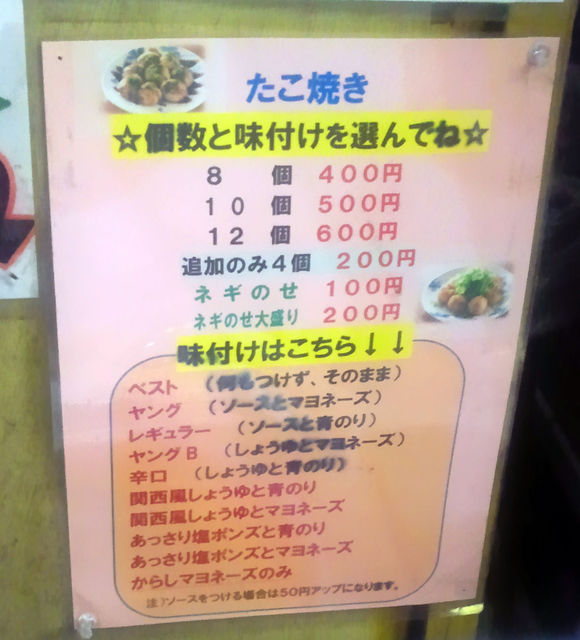 たこ焼き
☆個数と味付けを選んでね☆
8 個 400円
10 個 500円
12 個 600円
追加のみ4個 200円
ネギのせ 100円
ネギのせ大盛り 200円
味付けはこちら↓↓
ベスト (何もつけず、そのまま)
ヤング (ソースとマヨネーズ)
レギュラー (ソースと青のり)
ヤングB (しょうゆとマヨネーズ)
辛口 (しょうゆと青のり)
関西風しょうゆと青のり
関西風しょうゆとマヨネーズ
あっさり塩ポンズと青のり
あっさり塩ポンズとマヨネーズ
からしマヨネーズのみ
注)ソースをつける場合は50円アップになります。